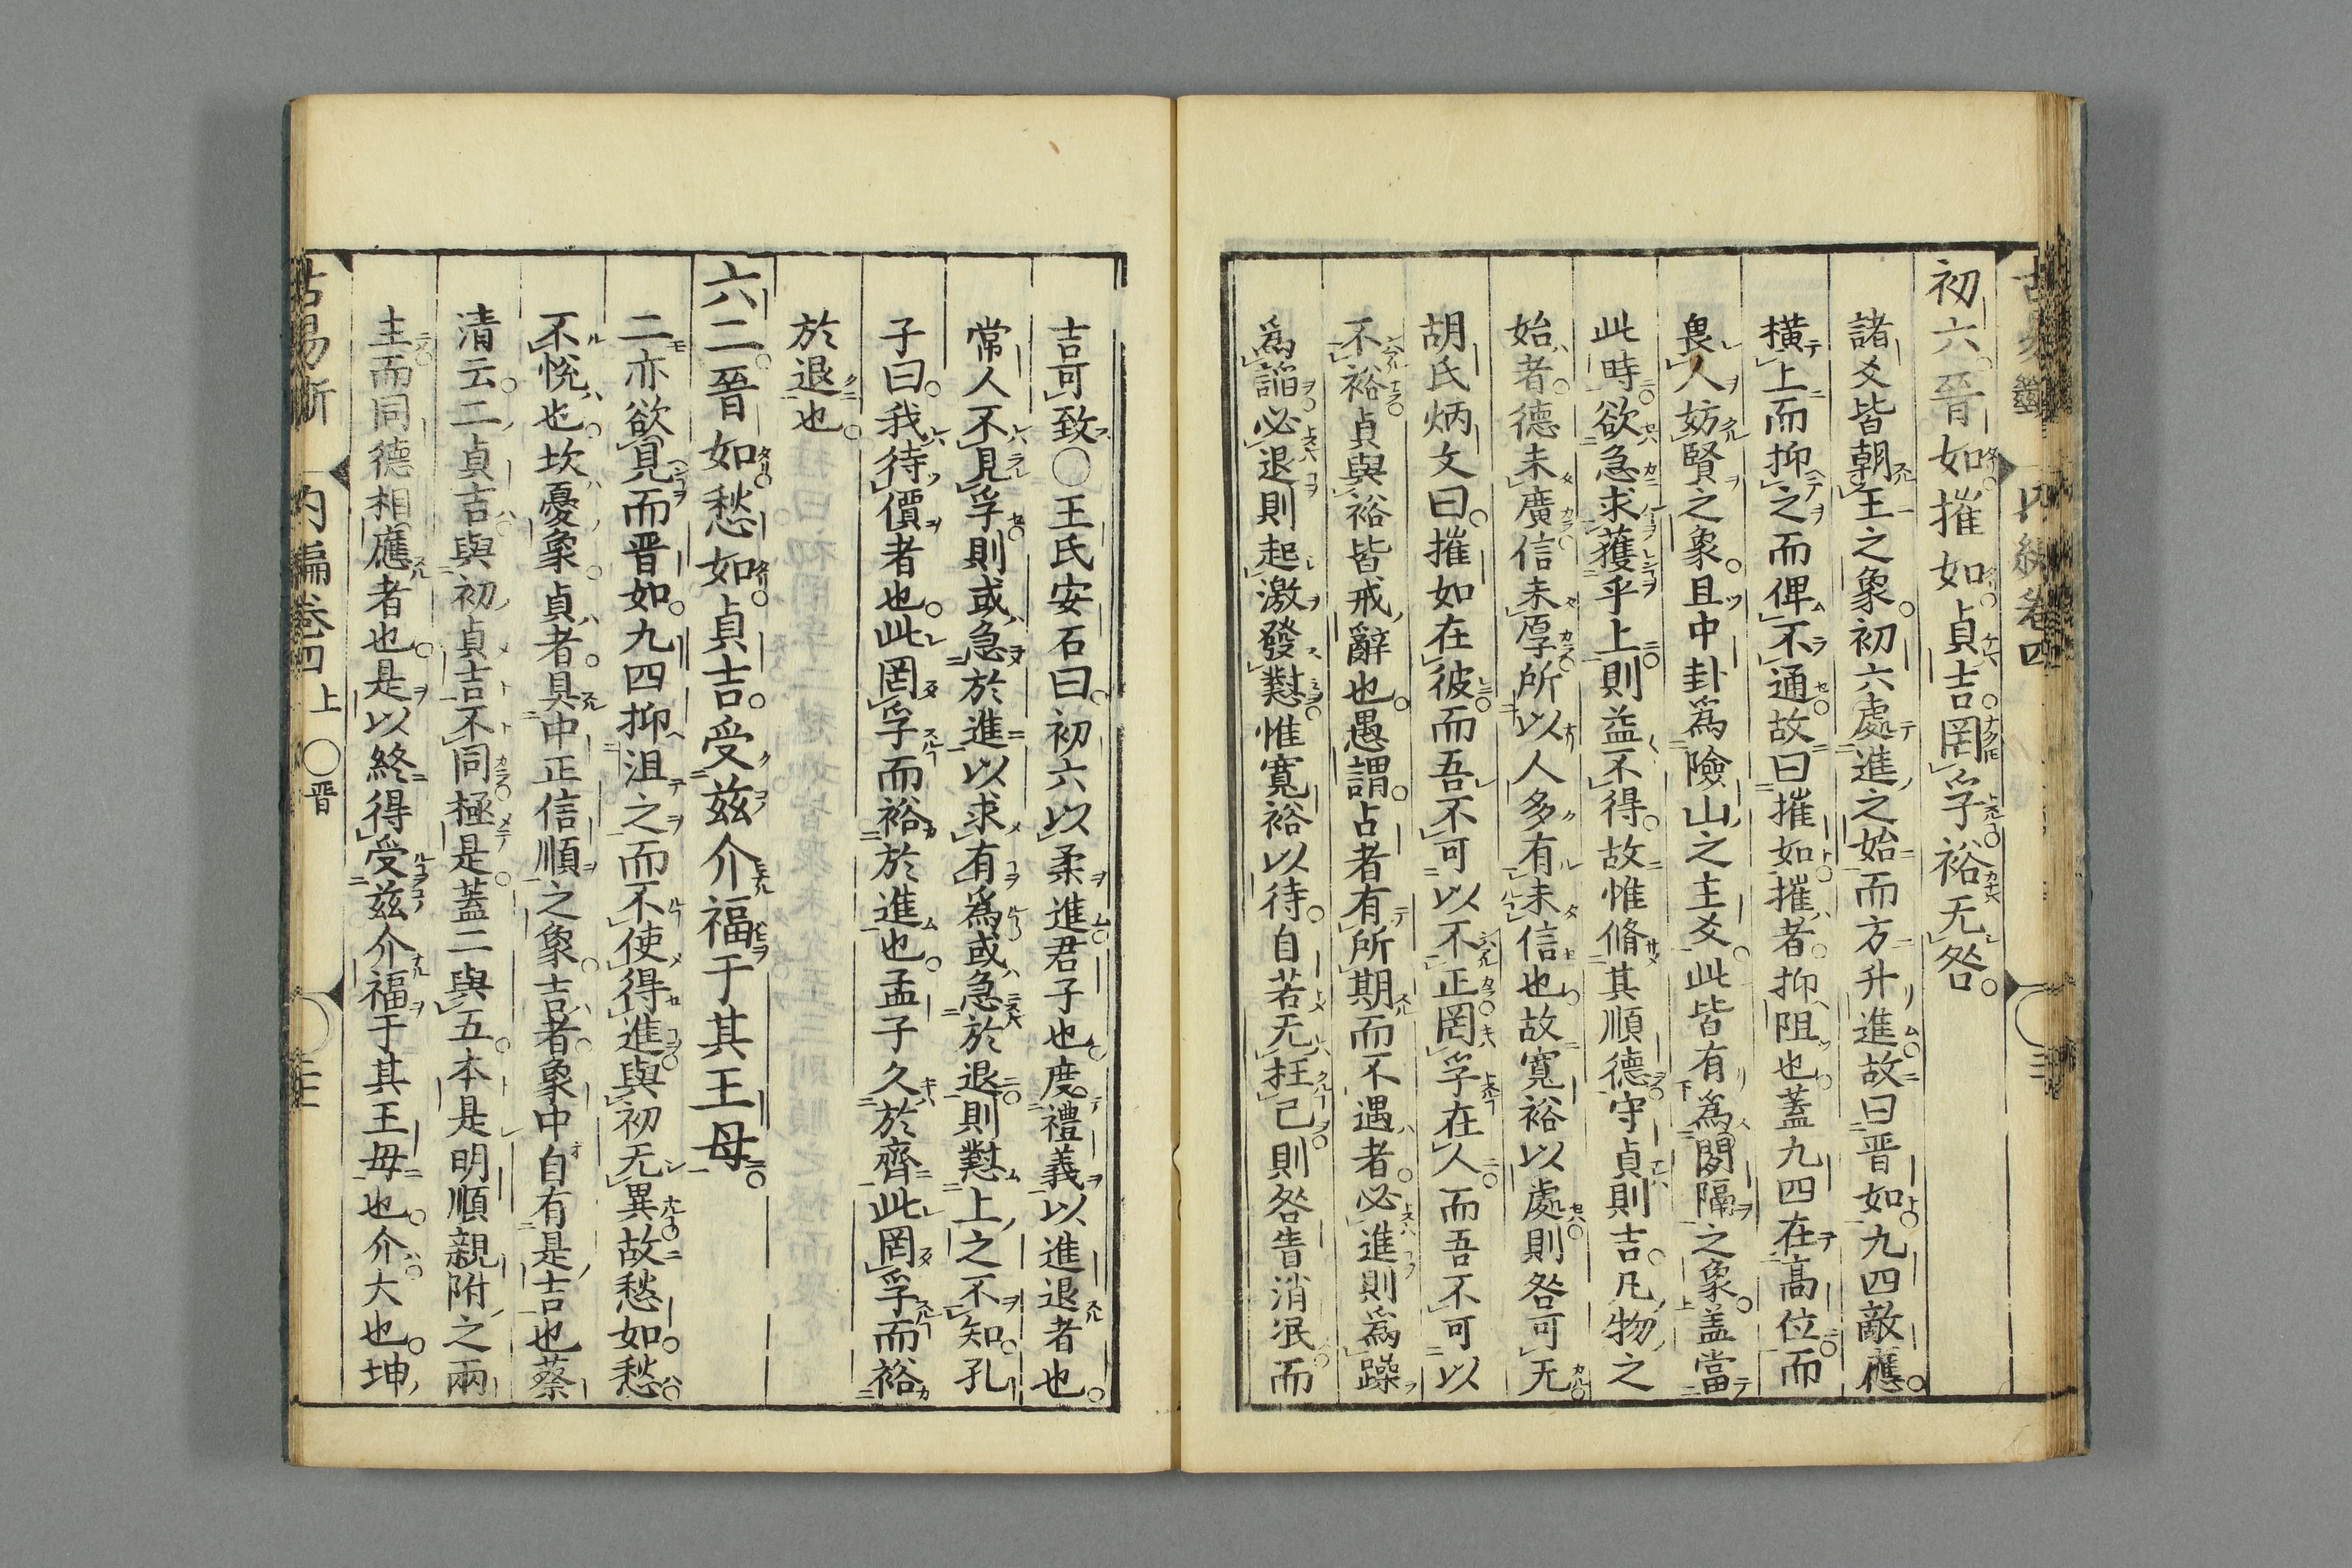 初六晉如摧如貞吉罔孚裕无咎
諸爻皆朝王之象初六處進之始而方升進故曰晋如九四敵應
横上而抑之而俾不通故曰摧如摧者抑阻也蓋九四在高位而
畏人妨賢之象且中卦爲險山之主爻此皆有爲閡隔之象盖當
此時欲急求獲乎上則益不得故惟脩其順德守貞則吉凡物之
始者德未廣信未厚所以人多有未信也故寬裕以處則咎可无
胡氏炳文曰摧如在彼而吾不可以不正罔孚在人而吾不可以
不裕貞與裕皆戒辭也愚謂占者有所期而不遇者必進則爲躁
爲諂必退則起激發懟惟寬裕以待自若无枉己則咎眚消泯而
吉可致〇王氏安石曰初六以柔進君子也度禮義以進退者也
常人不見孚則或急於進以求有爲或急於退則懟上之不知孔
子曰我待價者也此罔孚而裕於進也孟子久於齊此罔孚而裕
於退也
六二晉如愁如貞吉受兹介福于其王母
二亦欲見而晋如九四抑沮之而不使得進與初无異故愁如愁
不悅也坎憂象貞者具中正信順之象吉者象中自有是吉也蔡
清云二貞吉與初貞吉不同極是蓋二與五本是明順親附之兩
主而同德相應者也是以終得受兹介福于其王毋也介大也坤
古易斷 内編卷四上 〇晋